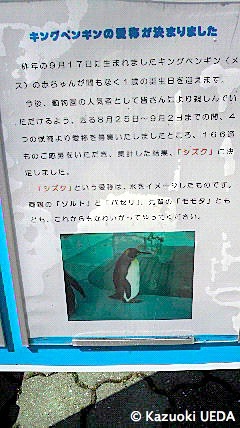 キングペンギンの愛称が決まりました
昨年の9月17日に生まれましたキングペンギン（メ
ス）の赤ちゃんが間もなく1歳の誕生日を迎えます。
今後、動物園の人気者として皆さんにより親しんでい
ただけるよう、去る8月25日～9月2日までの間、4
つの候補より愛称を募集いたしましたところ、166通
ものご応募をいただき、集計した結果、「シズク」に決
定しました。
「シズク」という愛称は、水をイメージしたものです。
両親の「ソルト」と「パセリ」、兄貴の「モモタ」とも
ども、これからもかわいがってやってください。
© Kazuoki UEDA